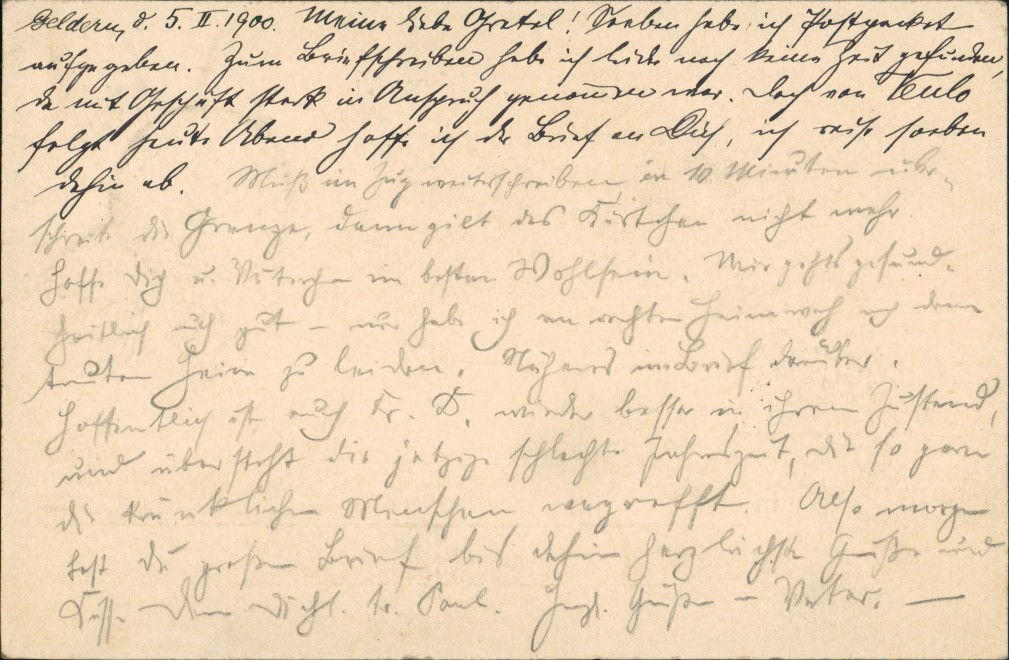 Geldern, d. 5. II. 1900. Meine liebe Gretel! Soeben habe ich Postpacket
aufgegeben. Zum Briefschreiben habe ich leider noch keine Zeit gefunden,
da mit Geschäft stark in Anspruch genommen war. Doch von Venlo
folgt heute Abend hoffe ich der Brief an Dich, ich reise soeben
dahin ab. Muß im Zug weiterschreiben, in 10 Minuten über-
schreite die Grenze, dann gilt das Kärtchen nicht mehr.
Hoffe Dich u. Väterchen im besten Wohlsein. Mir gehts gesund-
heitlich auch gut – nur habe ich an rechten Heimweh nach dem
trauten Heim zu leiden. Näheres im Brief darüber.
Hoffentlich ist auch Fr. D. wieder besser in ihrem Zustand,
und übersteht die jetzige schlechte Jahreszeit, die so gern
die kränklichen Menschen wegrafft. Also morgen
hast Du großen Brief bis dahin herzlichste Grüße und
Küsse Dein Dich l. tr. Paul. Herzl. Grüße an Vater. —